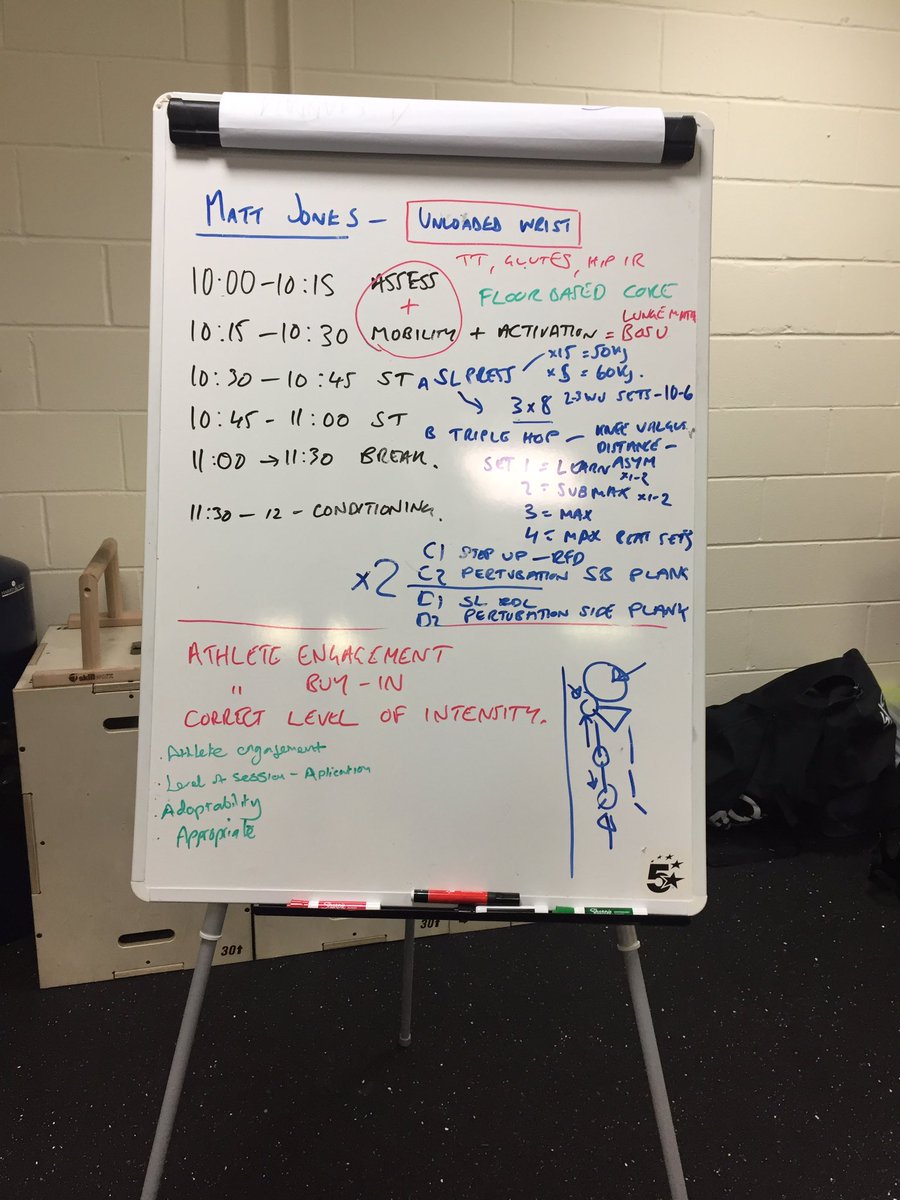 MATT JONES - UNLOADED WRIST
TT, GLUTES, HIP IR
10:00-10:15 ASSESS
+
FLOOR BASED CORE
10:15-10:30 MOBILITY + ACTIVATION = BOSU
LUNGE
10:30-10:45 ST A SL PRESS
x15 = 50kg
x5 = 60kg.
10:45-11:00 ST
3x8 2-3 WU SETS-10-6
B TRIPLE HOP - KNEE VALGUS
DISTANCE -
ASYM
11:00 → 11:30 BREAK.
SET 1 = LEARN x1-2
2 = SUBMAX x1-2
3 = MAX
4 = MAX
SETS
11:30-12 - CONDITIONING.
x2
C1 STEP UP - RFD
C2 PERTUBATION SB PLANK
D1 SL RDL
D2 PERTUBATION SIDE PLANK
ATHLETE ENGAGEMENT
" BUY-IN
CORRECT LEVEL OF INTENSITY.
· Athlete engagement
· Level of session - Aplication
· Adaptability
· Appropriate
5
Sharpie
Sharpie
30↑
30↑